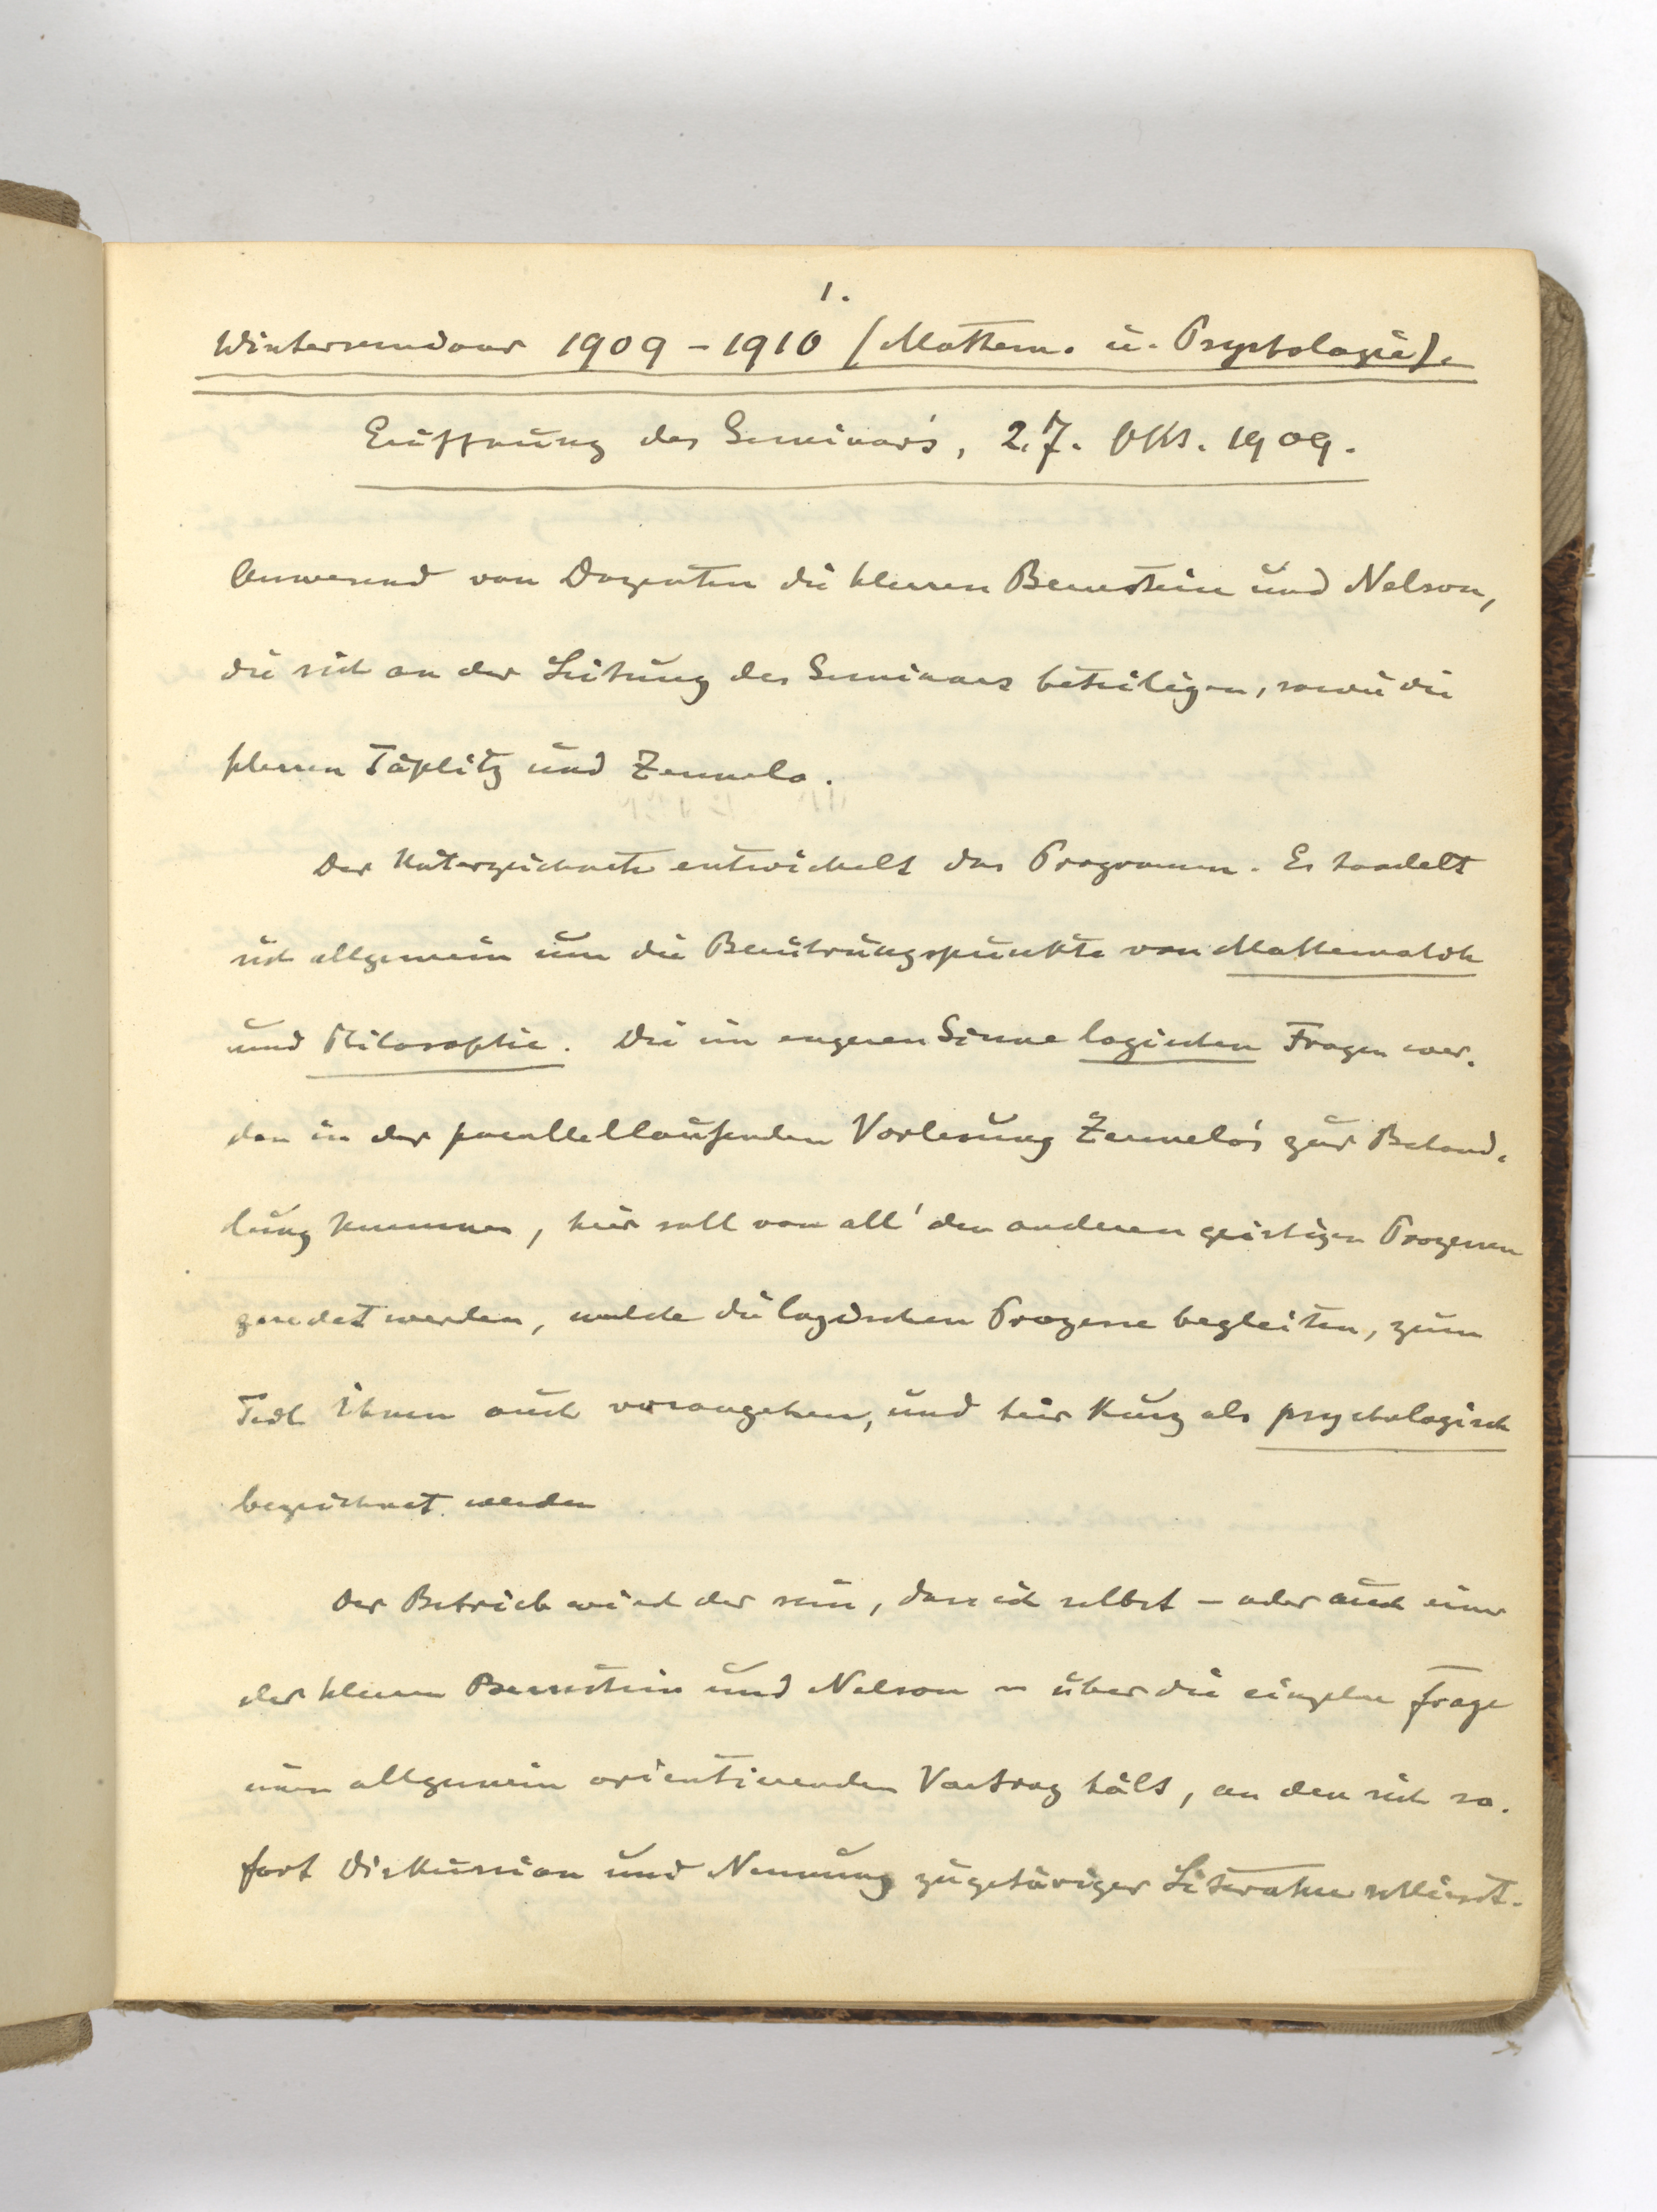 1.
Winterseminar 1909 – 1910 (Mathem. u. Psychologie).
Eröffnung des Seminar's, 27. Okt. 1909.
Anwesend von Dozenten die Herren Bernstein und Nelson,
die sich an der Leitung des Seminars beteiligen, sowie die
Herren Töplitz und Zermelo.
Der Unterzeichnete entwickelt das Programm. Es handelt
sich allgemein um die Berührungspunkte von Mathematik
und Philosophie. Die im engeren Sinne logischen Fragen wer-
den in der parallellaufenden Vorlesung Zermelo's zur Behand-
lung kommen, hier soll von all' den anderen geistigen Prozessen
geredet werden, welche die logischen Prozesse begleiten, zum
Teil ihnen auch vorangehen, und hier kurz als psychologisch
bezeichnet werden
Der Betrieb wird der sein, dass ich selbst – oder auch einer
der Herren Bernstein und Nelson – über die einzelne Frage
einen allgemein orientierenden Vortrag hält, an den sich so-
fort Diskussion und Nennung zugehöriger Literatur schliesst.